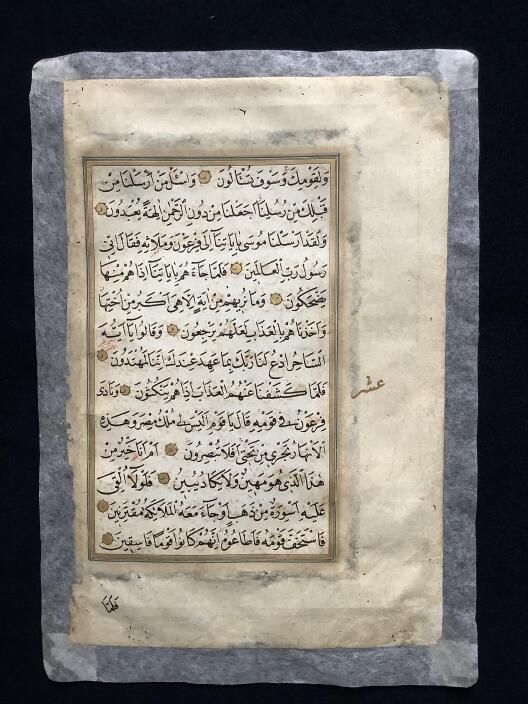 وَلِقَوْمِكَ وَسَوْفَ تُسْـَٔلُونَ وَاسْـَٔلْ مَنْ اَرْسَلْنَا مِنْ
قَبْلِكَ مِنْ رُسُلِنَا اَجَعَلْنَا مِنْ دُونِ الرَّحْمٰنِ اٰلِهَةً يُعْبَدُونَ
وَلَقَدْ اَرْسَلْنَا مُوسٰى بِاٰيَاتِنَا اِلٰى فِرْعَوْنَ وَمَلَائِهِ فَقَالَ اِنِّي
رَسُولُ رَبِّ الْعَالَمِينَ فَلَمَّا جَاءَهُمْ بِاٰيَاتِنَا اِذَا هُمْ مِنْهَا
يَضْحَكُونَ وَمَا نُرِيهِمْ مِنْ اٰيَةٍ اِلَّا هِيَ اَكْبَرُ مِنْ اُخْتِهَا
وَاَخَذْنَاهُمْ بِالْعَذَابِ لَعَلَّهُمْ يَرْجِعُونَ وَقَالُوا يَا اَيُّهَ
السَّاحِرُ ادْعُ لَنَا رَبَّكَ بِمَا عَهِدَ عِنْدَكَ اِنَّنَا لَمُهْتَدُونَ
فَلَمَّا كَشَفْنَا عَنْهُمُ الْعَذَابَ اِذَا هُمْ يَنْكُثُونَ وَنَادٰى
فِرْعَوْنُ فِي قَوْمِهِ قَالَ يَا قَوْمِ اَلَيْسَ لِي مُلْكُ مِصْرَ وَهٰذِهِ
عشر
الْاَنْهَارُ تَجْرِي مِنْ تَحْتِي اَفَلَا تُبْصِرُونَ اَمْ اَنَا خَيْرٌ مِنْ
هٰذَا الَّذِي هُوَ مَهِينٌ وَلَا يَكَادُ يُبِينُ فَلَوْلَا اُلْقِيَ
عَلَيْهِ اَسْوِرَةٌ مِنْ ذَهَبٍ اَوْ جَاءَ مَعَهُ الْمَلَائِكَةُ مُقْتَرِنِينَ
فَاسْتَخَفَّ قَوْمَهُ فَاَطَاعُوهُ اِنَّهُمْ كَانُوا قَوْمًا فَاسِقِينَ
فَلَمَّا